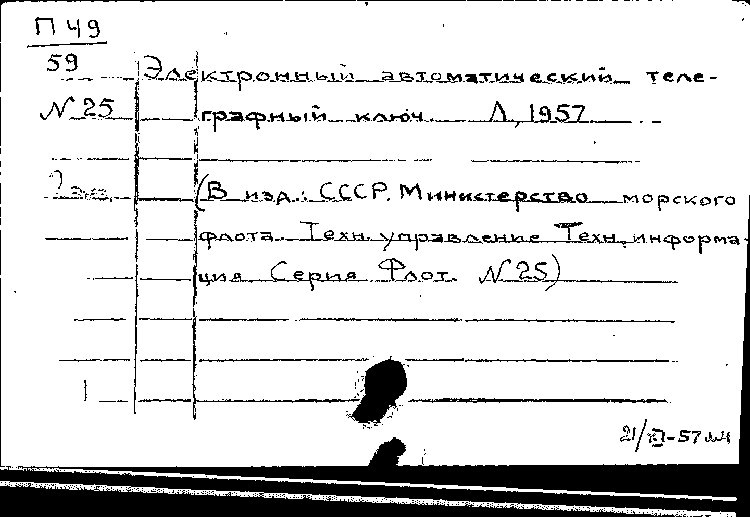 П 49
59 Электронный автоматический теле-
N 25 графный ключ. Л, 1957
(В изд.: СССР. Министерство морского
флота. Техн. управление Техн. информа-
ция Серия Флот. N 25)